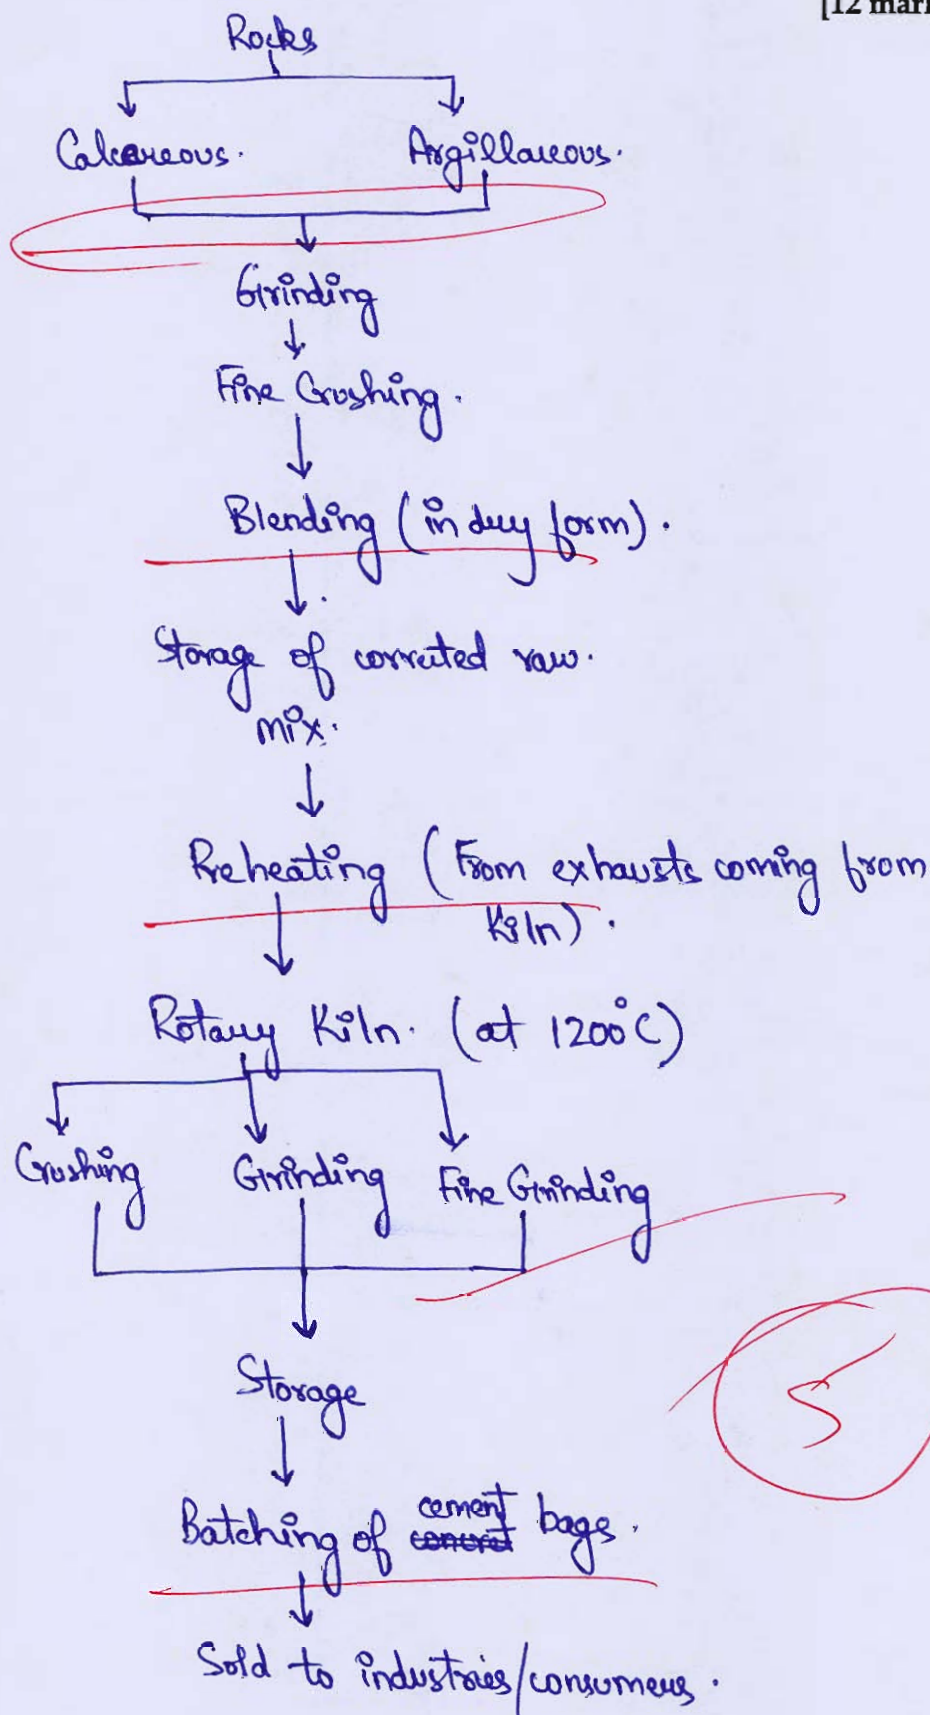 [12 mar
Rocks
Calcareous. Argillaceous.
Grinding
Fine Crushing.
Blending (in dry form).
Storage of corrected raw.
mix.
Preheating (From exhausts coming from
Kiln).
Rotary Kiln. (at 1200°C)
Crushing Grinding Fine Grinding
5
Storage
cement
Batching of concret bags.
Sold to industries/consumers.